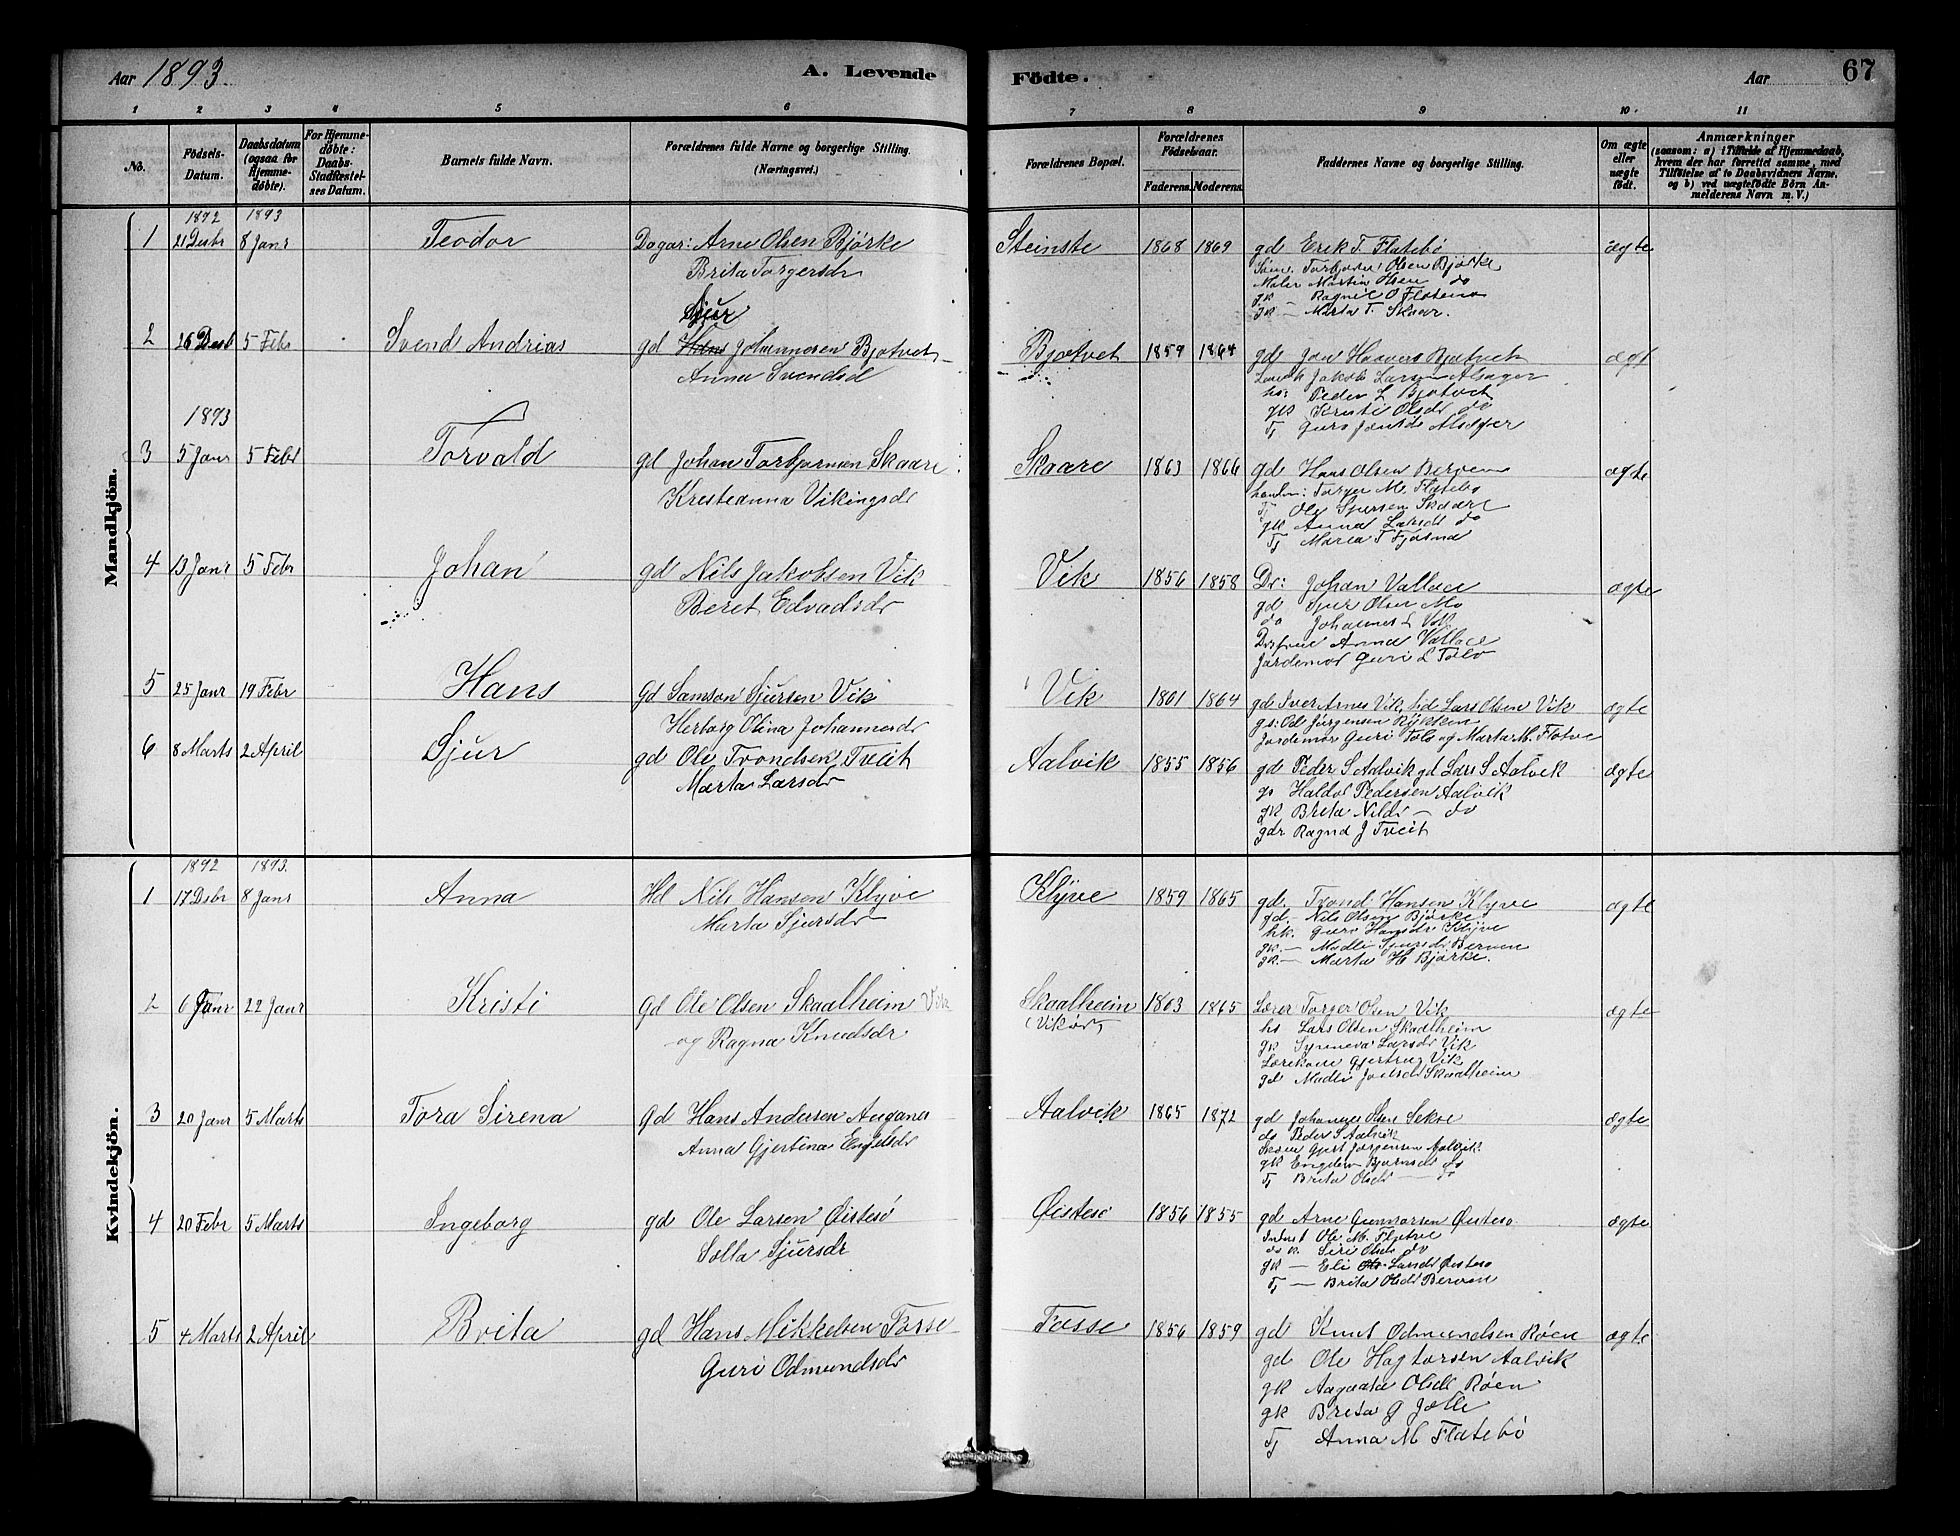 Aar 1893. A. Levende Födte. Aar 67
1 2 3 4 5 6 7 8 9 10 11
No. Födsels-Datum. Daabsdatum (ogsaa for Hjemmedöbte). For Hjemmedöbte: Daabs-Stadfæstelses Datum. Barnets fulde Navn. Forældrenes fulde Navne og borgerlige Stilling. (Næringsvei.) Forældrenes Bopæl. Forældrenes Födselsaar. Faderens. Moderens. Faddernes Navne og borgerlige Stilling. Om ægte eller uægte födt. Anmærkninger (saasom: a) i Tilfælde af Hjemmedaab, hvem der har forrettet samme, med Tilföielse af to Daabsvidners Navne, og b) ved uægtefödte Börn Anmelderens Navn m. V.)
Mandkjön.
1892 1893
1 21 Desbr 8 Janr Teodor Dagar: Arne Olsen Bjørke Steinstø 1868 1869 gd Erik T. Flatebø ægte
Brita Torgersdr
Torbjørn Olsen Bjørke
Maler Martin Olsen do
gk Ragnil O Flotena
gk — Marta T. Skaar.
Sjur
2 26 Desb 5 Febr Svend Andrias gd Hans Johannesen Bjotvet Bjotvet 1859 1864 gd Jon Haavers Bjotvet ægt
Anna Svendsd
Jakob Larsen Alsager
hs: Peder L Bjotvet
gk Kristi Olsdr do
Tj Guro Alsager
1893
3 5 Janr 5 Febr Torvald gd Johan Torbjørnsen Skaare Skaare 1863 1866 gd Hans Olsen Berven ægte
Kresteanna Vikingsdr
Torger M. Flatebø
Tj Ole Sjursen Skaare
gk Anna Larsdr do
Tj Maria T Fjosna
4 13 Janr 5 Febr Johan gd Nils Jakobsen Vik Vik 1856 1858 Dr: Johan Vallace ægte
Beret Edvadsdr
gd Sjur Olsen Mo
do Johannes L Vik
Anna Vallace
Jordemor Guri L Tolo
5 25 Janr 19 Febr Hans Gd Samson Sjursen Vik Vik 1861 1864 gd Iver Arnes Vik, Lars Olsen Vik ægte
Herborg Olina Johannesdr
gs: Ole Jørgensen Rykken
Jordemor Guri Tolo og Marta M. Flotve
6 8 Marts 2 April Sjur gd Ole Trondsen Tveit Aalvik 1855 1856 gd Peder S Aalvik gd Lars S Aalvik ægte
Marta Larsdr
gs Haldor Pedersen Aalvik
gk Brita Nilsdr — do
gdr Ragnd J Tveit
Kvindekjön.
1892 1893.
1 17 Desbr 8 Janr Anna Hd Nils Hansen Klyve Klyve 1859 1865 gd. Trond Hansen Klyve ægte
Marta Sjursdr
gd. — Nils Olsen Bjørke
hk. Guro Hansdr Klyve
gk. — Madli Sjursdr Berven
gk. — Marta H Bjørke.
2 6 Janr 22 Janr Kristi Gd Ole Olsen Skaalheim Vik Skaalheim 1863 1865 Lærer Torger Olsen Vik ægte
og Ragna Knudsdr (Vikør)
hs Lars Olsen Skaalheim
gk Synneva Larsdr Vik
Lærekone Gjertrug Vik
gd Madli Skaalheim
3 20 Janr 5 Marts Tora Sirena Gd Hans Andersen Augana Aalvik 1865 1872 gd Johannes Olsen Sekse ægte
Anna Gjertina Engelsdr
do Peder S Aalvik
Gjert Jørgensen Aalvik.
gk Engelen Bjørnsdr do
Tj Brita Olsdr — do
4 20 Febr 5 Marts Ingeborg gd Ole Larsen Øistesø Øistesø 1856 1855 gd Arne Gunnarsen Øistesø ægte
Solla Sjursdr
Ole M. Flotve
do k. Siri Olsdr do
gk — Eli Larsdr Øistesø
Tj — Brita Olsdr Berven
5 4 Marts 2 April Brita gd Hans Mikkelsen Fosse Fosse 1856 1859 gd Knut Odmundsen Røen ægte
Guri Odmundsdr
gd Ole Hagtorsen Aalvik
gk Aagaata Olsdr Røen
gk Brita G Jølle
Tj Anna M Flatebø